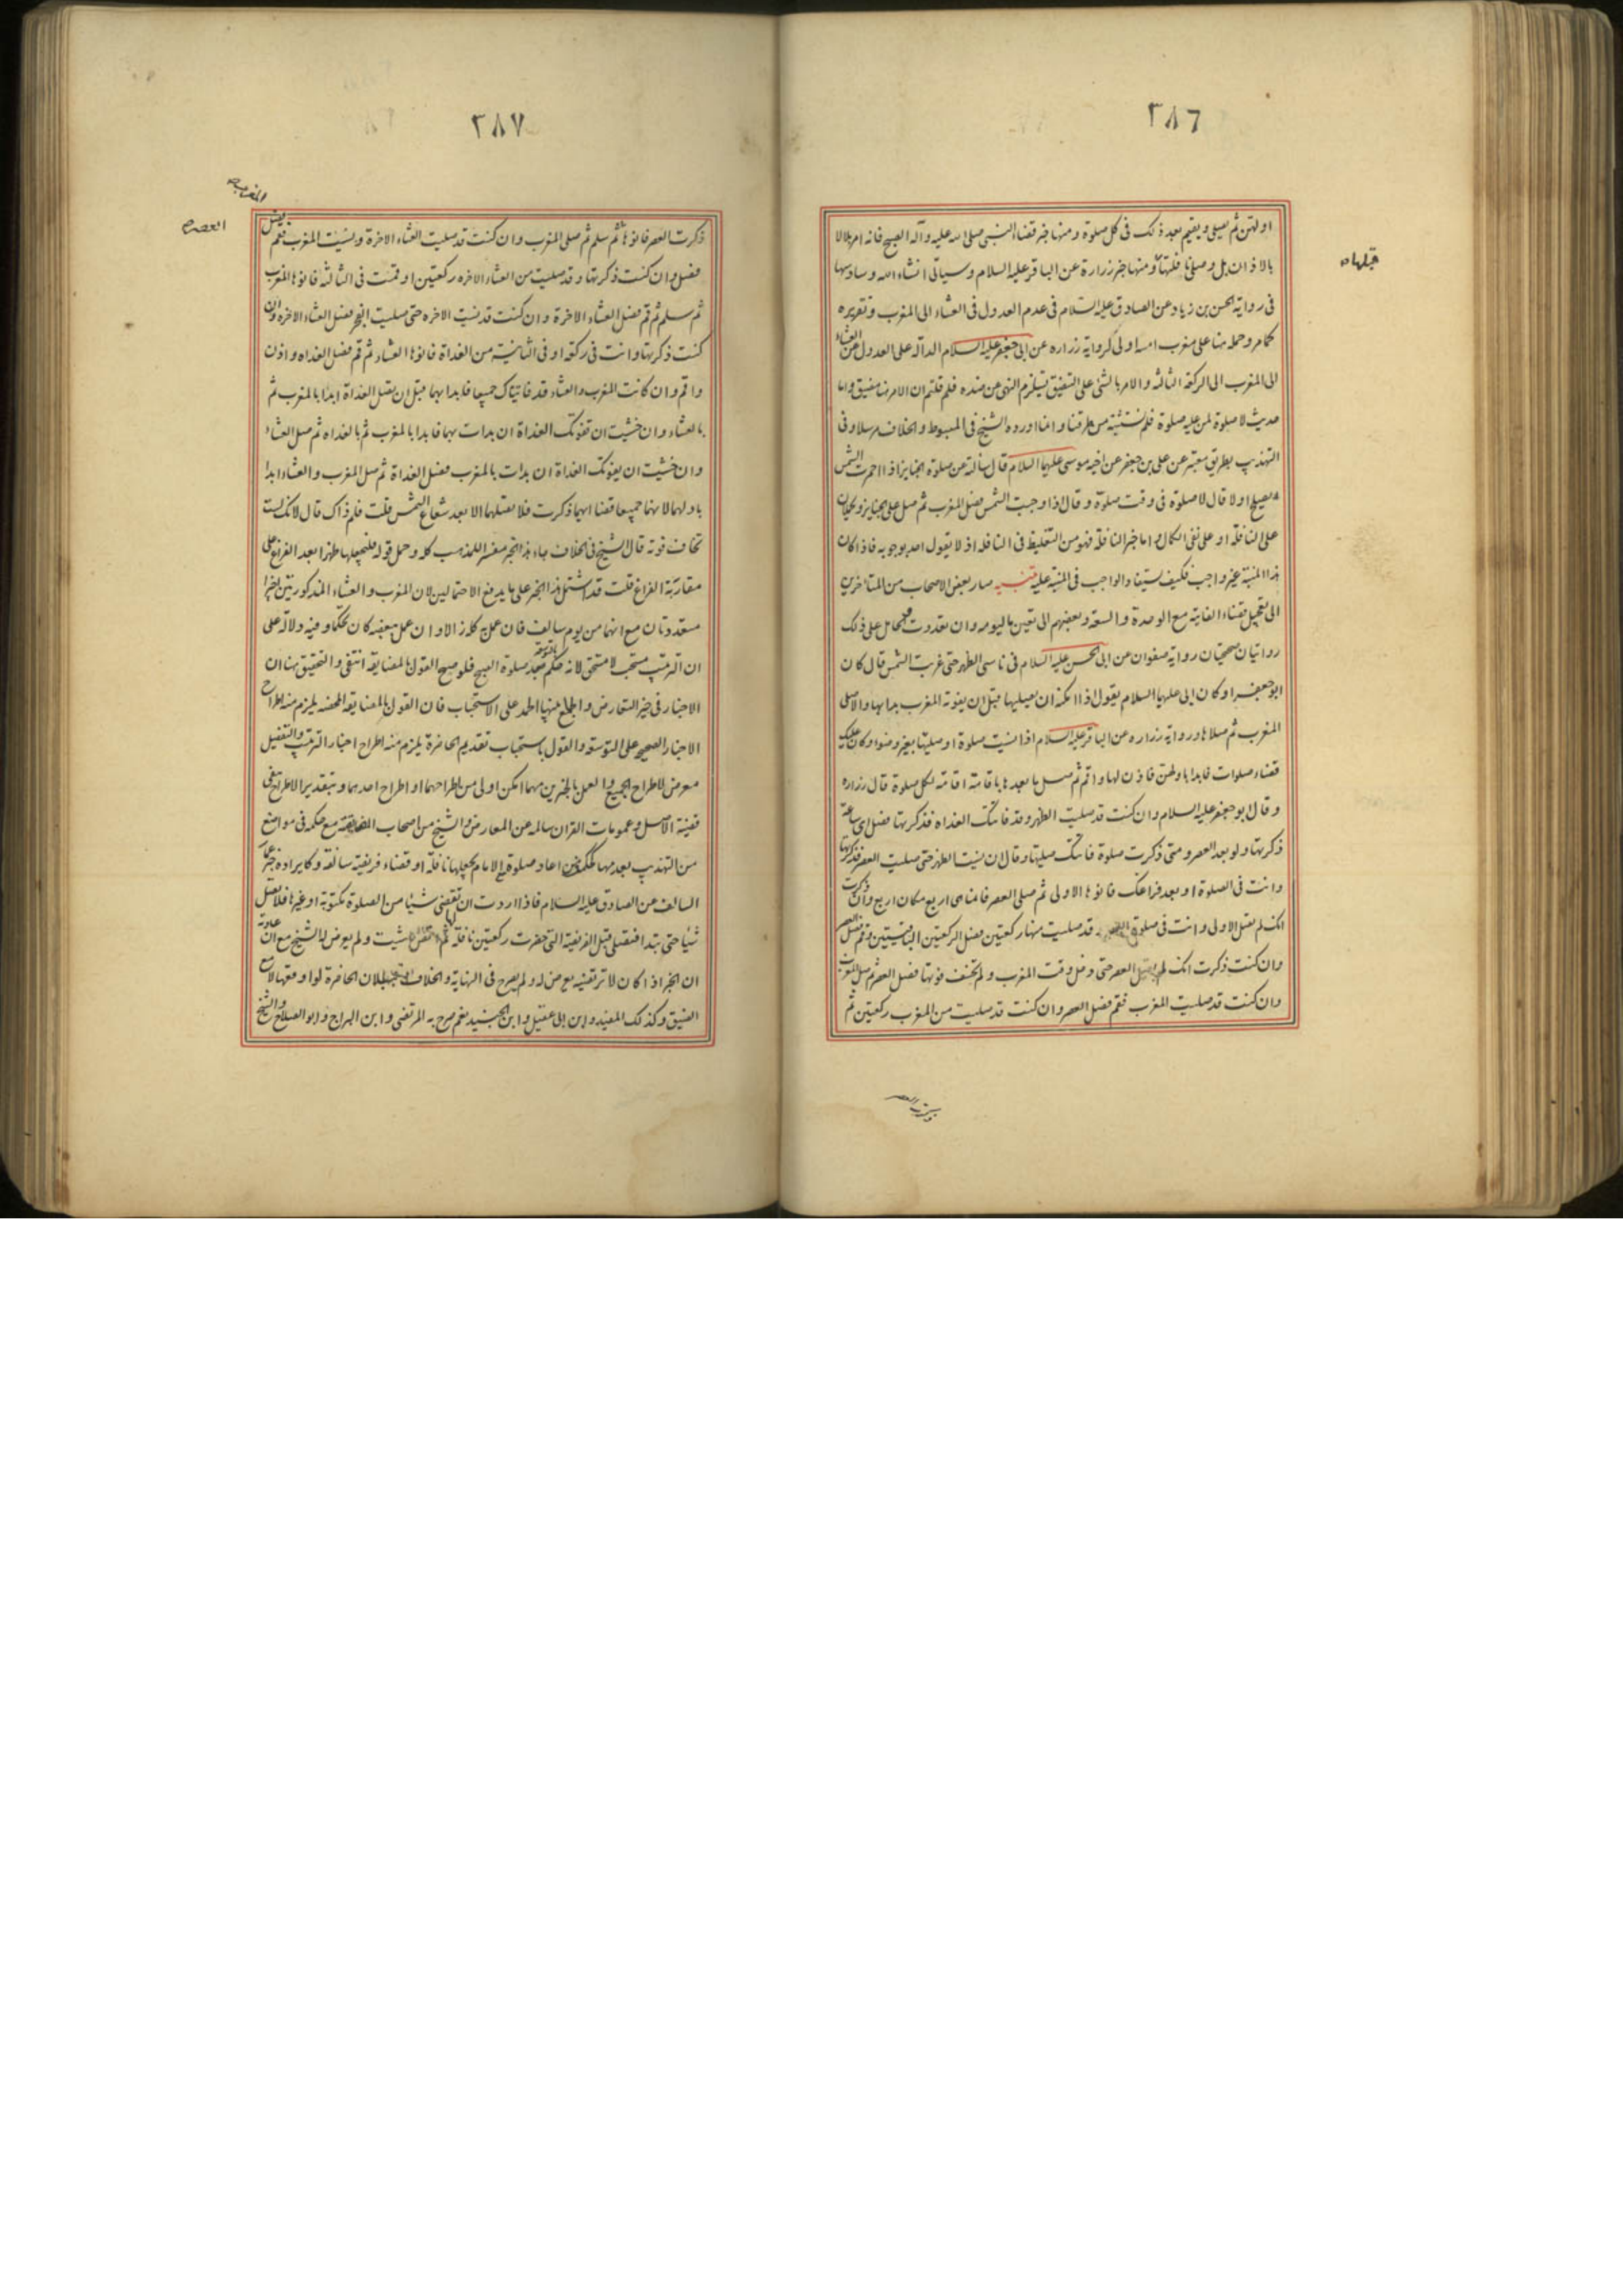 ٣٨٦
اولهن ثم يصلى ويقيم بعد ذلك فى كل صلوة ومنها خبر قضاء النبى صلى الله عليه وآله الصبح فانه امر بلالا
قبلها ه
بالاذان بل وصلى نافلتها ومنها خبر زرارة عن الباقر عليه السلام وسيأتى انشاء الله وسادسها
فى رواية الحسن بن زياد عن الصادق عليه السلام فى عدم العدول فى العشاء الى المغرب وتقريره
كما مر وحمله هنا على مغرب امسه اولى كرواية زراره عن ابى جعفر عليه السلام الدالة على العدول من العشاء
الى المغرب الى الركعة الثالثه والامر بالشئ على التضيق يستلزم النهى عن ضده فلم قلتم ان الامر هنا مضيق واما
حديث لا صلوة لمن عليه صلوة فلم نستثبته من طرقنا وانما اورده الشيخ فى المبسوط والخلاف مرسلا وفى
التهذيب بطريق معتبر عن على بن جعفر عن اخيه موسى عليهما السلام قال سالته عن صلوة الجنايز اذا احمرت الشمس
يصلح اولا قال لا صلوة فى وقت صلوة وقال اذا وجبت الشمس فصل المغرب ثم صل على الجنايز ويحملان
على النافلة او على نفى الكمال واما خبر النافلة فهو من التغليظ فى النافله اذ لا يقول احد بوجوبه فاذا كان
هذا المنبه غير واجب فكيف يستفاد الواجب فى المنبه عليه تنبيه صار بعض الاصحاب من المتأخرين
الى تعجيل قضاء الفايتة مع الوحدة والسعة وبعضهم الى تعين ما ليومه وان تعددت ويحامل على ذلك
روايتان صحيحتان رواية صفوان عن ابى الحسن عليه السلام فى ناسى الظهر حتى غربت الشمس قال كان
ابو جعفر او كان ابى عليهما السلام يقول اذا امكنه ان يصليها قبل ان يفوته المغرب بدا بها والا صلى
المغرب ثم صلاها ورواية زراره عن الباقر عليه السلام اذا نسيت صلوة او صليتها بغير وضوء وكان عليك
قضاء صلوات فابدا باولهن فاذن لها واقم ثم صل ما بعدها باقامة اقامة لكل صلوة قال زراره
وقال ابو جعفر عليه السلام وان كنت قد صليت الظهر وقد فاتتك الغداه فذكرتها فصل اى ساعة
ذكرتها ولو بعد العصر ومتى ذكرت صلوة فاتتك صليتها وقال ان نسيت الظهر حتى صليت العصر فذكرتها
وانت فى الصلوة او بعد فراغك فانوها الاولى ثم صلى العصر فانما هى اربع مكان اربع وان ذكرت
انك لم تصل الاولى وانت فى صلوة العصر قد صليت منها ركعتين فصل الركعتين الباقيتين وقم فصل العصر
وان كنت ذكرت انك لم تصل العصر حتى دخل وقت المغرب ولم تخف فوتها فصل العصر ثم صل المغرب
وان كنت قد صليت المغرب فقم فصل العصر وان كنت قد صليت من المغرب ركعتين ثم
٣٨٧
العصر ه
ذكرت العصر فانوها ثم سلم ثم صلى المغرب وان كنت قد صليت العشاء الاخرة ونسيت المغرب فقم
فصل وان كنت ذكرتها وقد صليت من العشاء الاخره ركعتين او قمت فى الثالثة فانوها المغرب
ثم سلم ثم قم فصل العشاء الاخرة وان كنت قد نسيت الاخره حتى صليت الفجر فصل العشاء الاخره وان
كنت ذكرتها وانت فى ركعة او فى الثانية من الغداة فانوها العشاء ثم قم فصل الغداه واذن
واقم وان كانت المغرب والعشاء قد فاتتاك جميعا فابدا بهما قبل ان تصل الغداة ابدا بالمغرب ثم
بالعشاء وان خشيت ان تفوتك الغداة ان بدات بهما فابدا بالمغرب ثم بالغداه ثم صل العشاء
وان خشيت ان يفوتك الغداة ان بدات بالمغرب فصل الغداة ثم صل المغرب والعشاء ابدا
باولهما لانهما جميعا قضاء ايهما ذكرت فلا تصلهما الا بعد شعاع الشمس قلت فلم ذاك قال لانك لست
تخاف فوته قال الشيخ فى الخلاف جاء هذا الخبر مفسرا للمذهب كله وحمل قوله فليجعلها ظهرا بعد الفراغ على
مقاربة الفراغ قلت قد اشتمل هذا الخبر على ما يدفع الاحتمالين لان المغرب والعشاء المذكورتين اخيرا
متعددتان مع انهما من يوم سالف فان عمل بكله زال الاول وان عمل ببعضه كان تحكما وفيه دلالة على
ان الترتيب مستحب لا مستحق لانه حكم بعد صلوة الصبح بالتوسعة فلو صح القول بالمضايقة انتفى والتحقيق هنا ان
الاخبار فى حيز التعارض والجمع بينها الحمل على الاستحباب فان القول بالمضايقه المحضه يلزم منه اطراح
الاخبار الصحيحه على التوسعة والقول باستحباب تقديم الحاضرة يلزم منه اطراح اخبار الترتيب والتفصيل
معرض لاطراح الجميع والعمل بالخبرين مهما امكن اولى من اطراحهما او اطراح احدهما وبتقدير الاطراح تبقى
قضية الاصل وعمومات القران سالمه عن المعارض والشيخ من اصحاب المضايقة مع حكمه فى مواضع
من التهذيب بعدمها كحكمه فيمن اعاد صلوة مع الامام يجعلها نافلة او قضاء فريضة سالفة وكايراده خبر عمار
السالف عن الصادق عليه السلام فاذا اردت ان تقضى شيئا من الصلوة مكتوبة او غيرها فلا تصل
شيئا حتى تبدا فتصلى قبل الفريضة التى حضرت ركعتين نافلة لها ثم اقض ما شيت ولم يعرض له الشيخ مع ان عادته
ان الخبر اذا كان لا يرتضيه يعرض له ولم يصرح فى النهاية والخلاف ببطلان الحاضرة لو اوقعها لا مع
الضيق وكذلك المفيد وابن ابى عقيل وابن الجنيد نعم صرح به المرتضى وابن البراج وابو الصلاح والشيخ